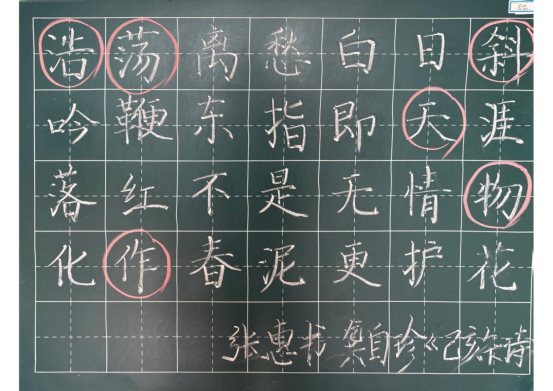 浩荡离愁白日斜
吟鞭东指即天涯
落红不是无情物
化作春泥更护花
张惠书 龚自珍《己亥杂诗